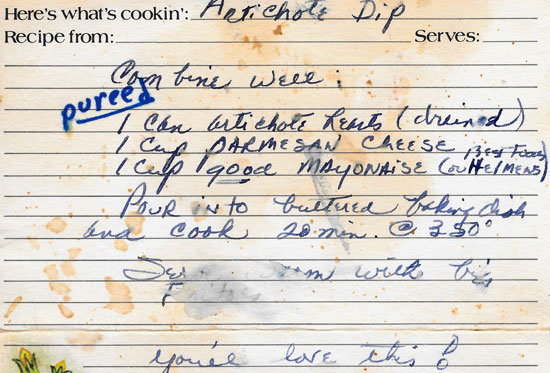 Here's what's cookin': Artichoke Dip
Recipe from: Serves:
Combine well:
pureed
1 Can artichoke hearts (drained)
1 Cup PARMESAN CHEESE
1 Cup good MAYONAISE (Best Foods or Helmens)
Pour into buttered baking dish
and cook 20 min. @ 350°
with
you'll love this!